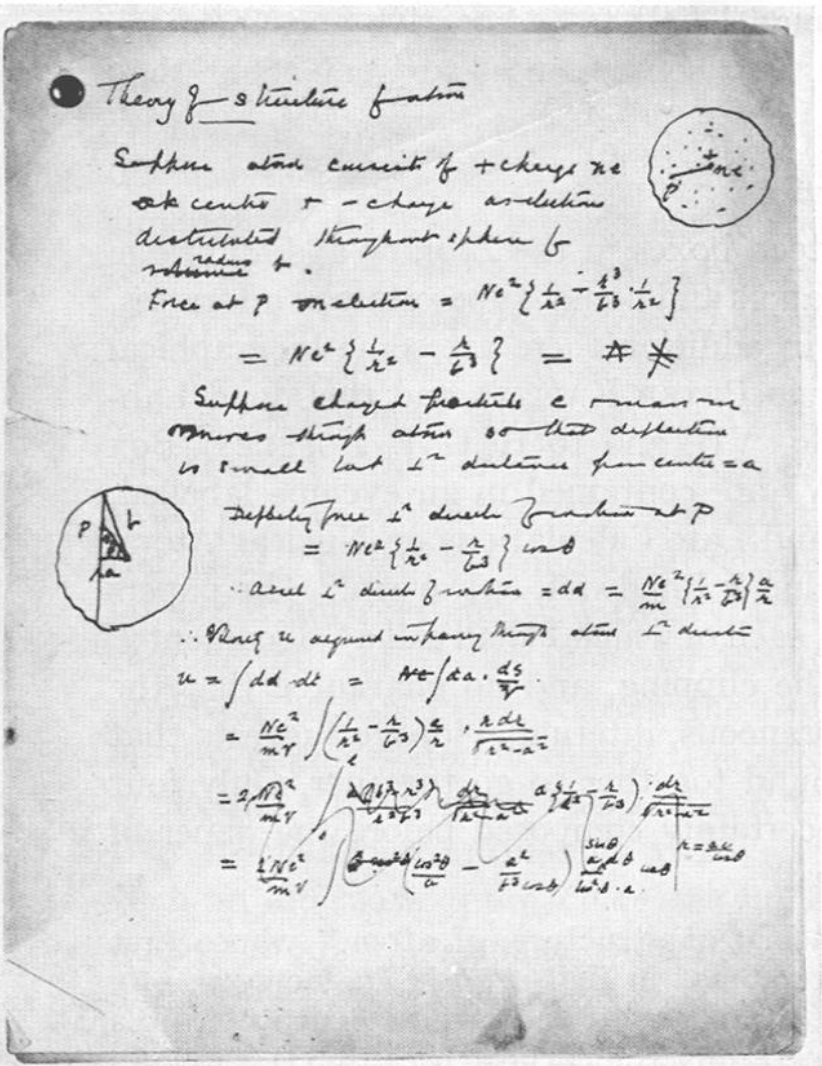 Theory of structure of atoms
Suppose atom consists of + charge ne
at centre + - charge as electrons
distributed throughout sphere of
radius b.
+ ne
P
Force at P on electron = Ne² { 1/r² - r³/b³ · 1/r² }
= Ne² { 1/r² - r/b³ } =
Suppose charged particle e + mass m
moves through atom so that deflection
is small and ⊥ʳ distance from centre = a
P b
r θ
a
Deflecting force ⊥ʳ direction of motion at P
= Ne² { 1/r² - r/b³ } cos θ
∴ accel ⊥ʳ direction of motion = dd = Ne²/m { 1/r² - r/b³ } a/r
∴ u acquired in passing through atom ⊥ʳ direction
u = ∫ dd · dt = ∫ da · ds/v
= Ne²/mv ∫ ( 1/r² - r/b³ ) a/r · r dr/√(r² - a²)
= 2 Ne²/mv ∫ a { 1/r² - r/b³ } · dr/√(r² - a²)
= 2Ne²/mv ∫ ( cos²θ/a - a²/b³ cos θ )